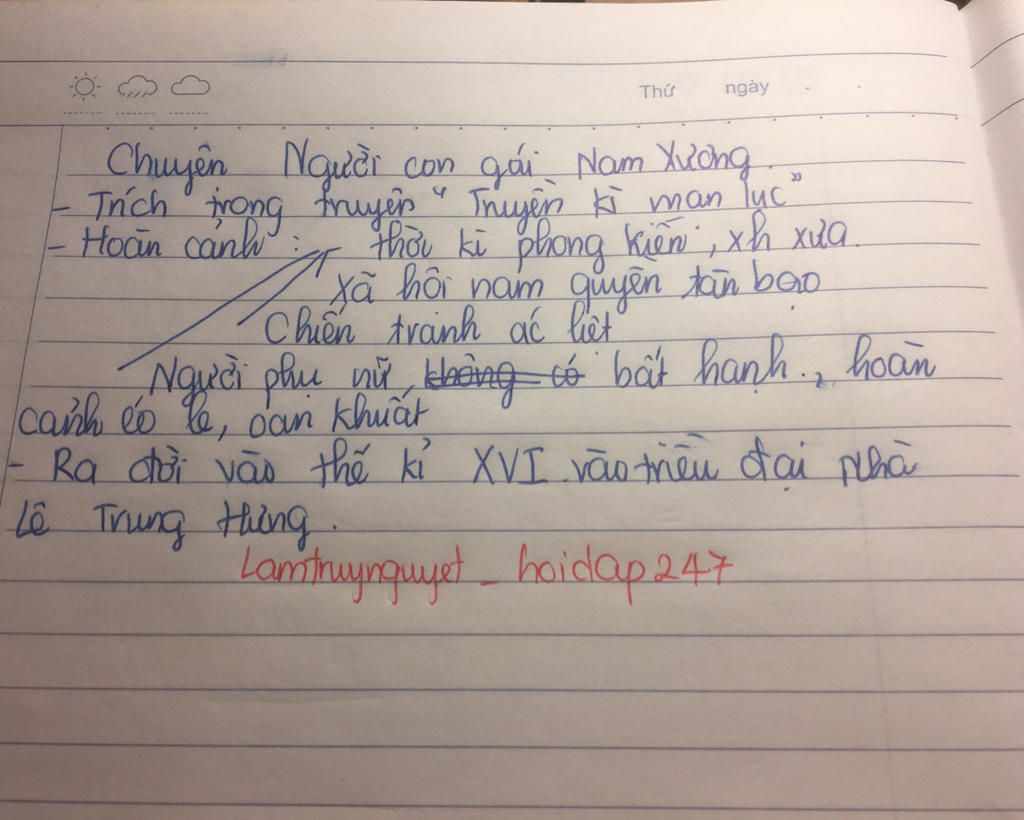 Thứ ngày
Chuyện Người con gái Nam Xương.
- Trích trong truyện "Truyền kì mạn lục"
- Hoàn cảnh : - thời kì phong kiến, xh xưa.
Xã hội nam quyền tàn bạo
Chiến tranh ác liệt
Người phụ nữ, không có bất hạnh., hoàn
cảnh éo le, oan khuất
- Ra đời vào thế kỉ XVI vào triều đại nhà
Lê Trung Hưng.
Lamtruynguyet_hoidap247